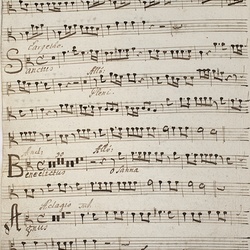 Larghetto
Sanctus
Allo
Pleni
And:
Allo
Benedictus
Osanna
Adagio
Agnus